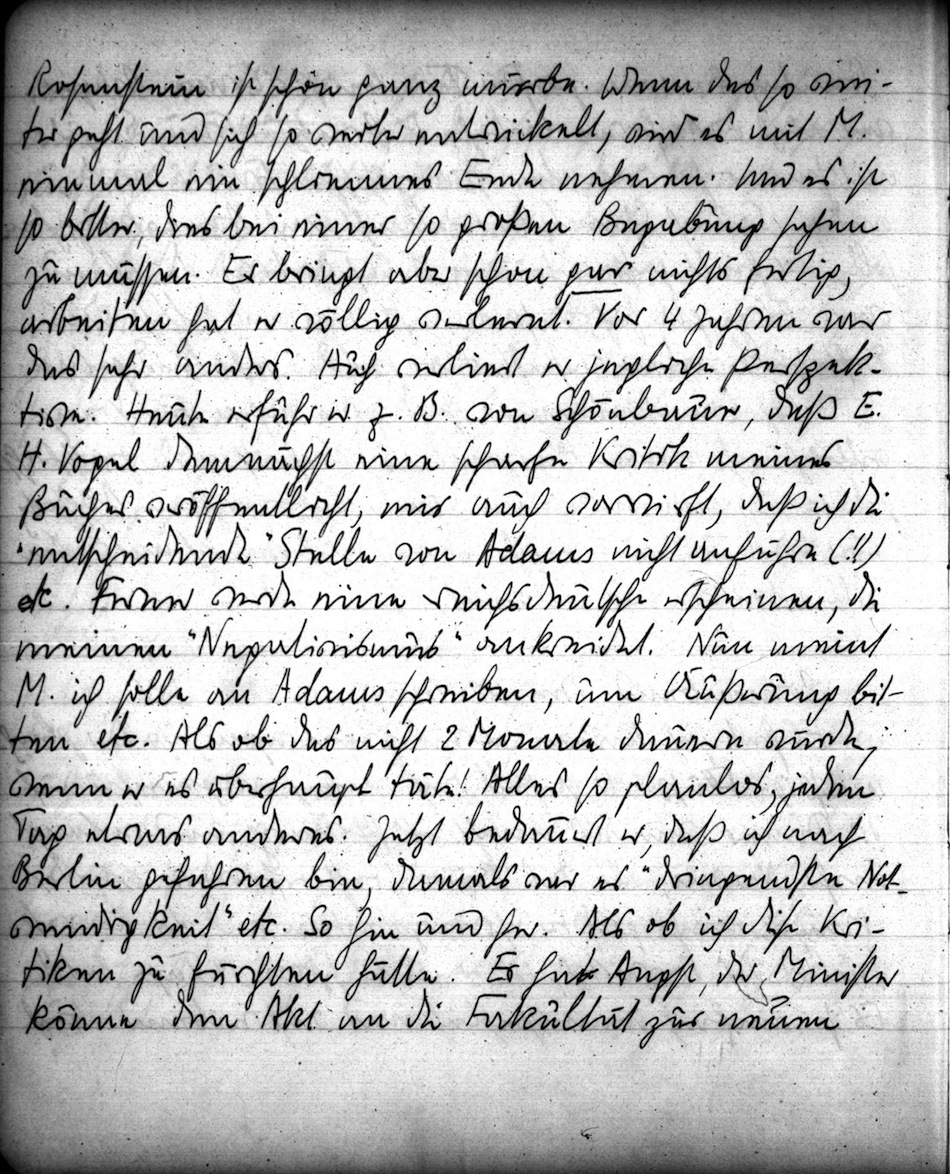 Rosenstein ist schon ganz mürbe. Wenn das so wei-
ter geht und sich so weiter entwickelt, wird es mit M.
einmal ein schlimmes Ende nehmen. Und es ist
so bitter, dies bei einer so großen Begabung sehen
zu müssen. Er bringt aber schon gar nichts fertig,
arbeiten hat er völlig verlernt. Vor 4 Jahren war
das sehr anders. Auch verliert er jegliche Perspek-
tive. Heute erfuhr er z. B. von Schönbauer, daß E.
H. Vogel demnächst eine scharfe Kritik meines
Buches veröffentlicht, mir auch vorwirft, daß ich die
"entscheidende" Stelle von Adams nicht anführe (!!)
etc. Ferner werde eine reichsdeutsche erscheinen, die
meinen "Negativismus" ankreidet. Nun meint
M. ich solle an Adams schreiben, um Äußerung bit-
ten etc. Als ob das nicht 2 Monate dauern würde,
wenn er es überhaupt täte! Alles so planlos, jeden
Tag etwas anderes. Jetzt bedauert er, daß ich nach
Berlin gefahren bin, damals war es "dringendste Not-
wendigkeit" etc. So hin und her. Als ob ich diese Kri-
tiken zu fürchten hätte. Er hat Angst, der Minister
könne den Akt an die Fakultät zur neuen